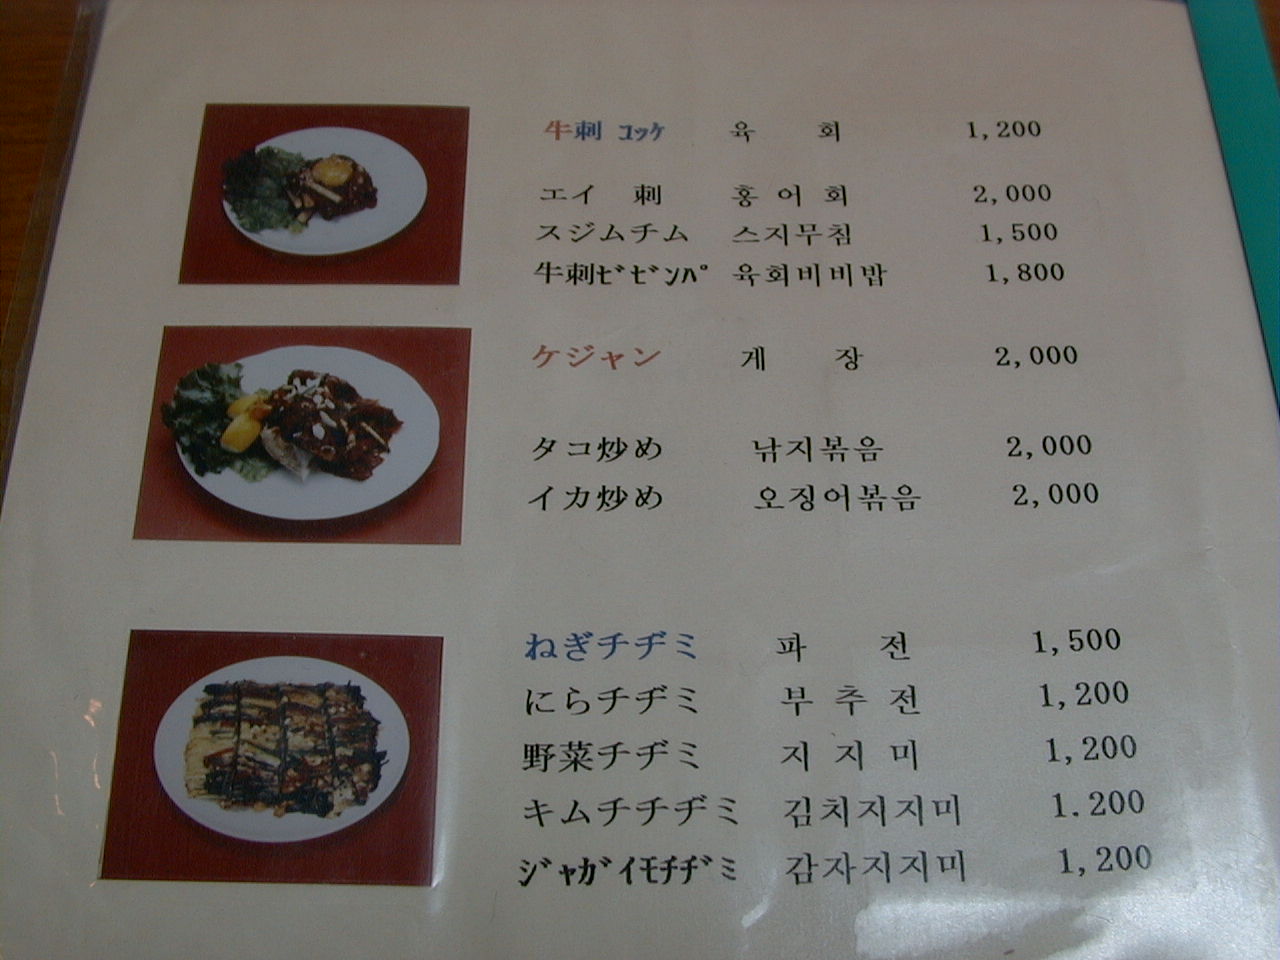 牛刺 ﾕｯｹ 육 회 1,200
エイ 刺 홍 어 회 2,000
スジムチム 스지무침 1,500
牛刺ﾋﾞﾋﾞﾝﾊﾟ 육회비비밥 1,800
ケジャン 게 장 2,000
タコ炒め 낚지볶음 2,000
イカ炒め 오징어볶음 2,000
ねぎチヂミ 파 전 1,500
にらチヂミ 부 추 전 1,200
野菜チヂミ 지 지 미 1,200
キムチチヂミ 김치지지미 1.200
ｼﾞｬｶﾞｲﾓﾁﾁﾞﾐ 감자지지미 1,200